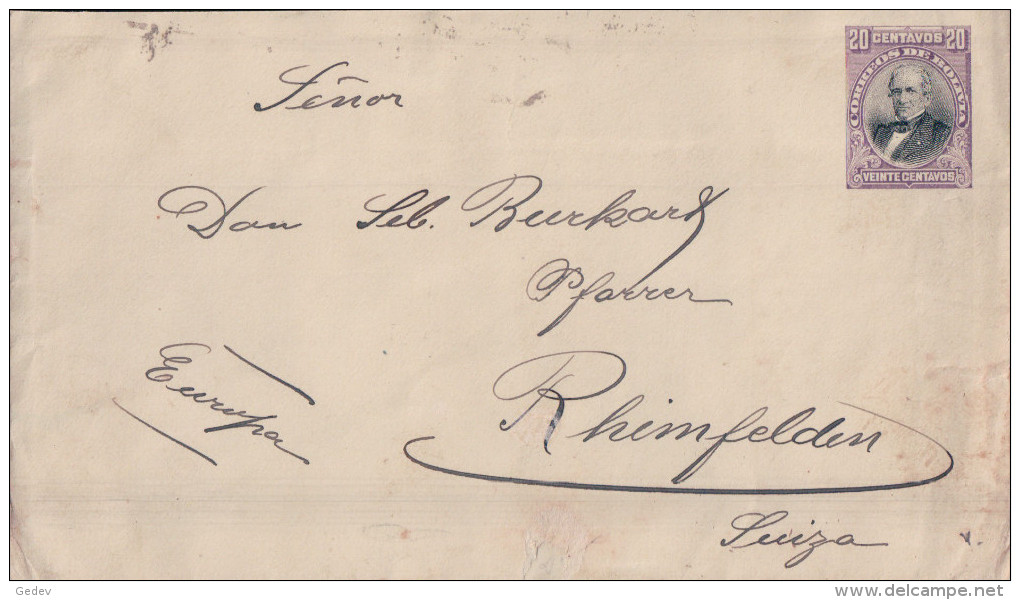 20 CENTAVOS 20
CORREOS DE BOLIVIA
VEINTE CENTAVOS
Señor
Don Seb. Burkart
Pfarrer
Europa
Rheinfelden
Suiza
Gedev
delcampe.net